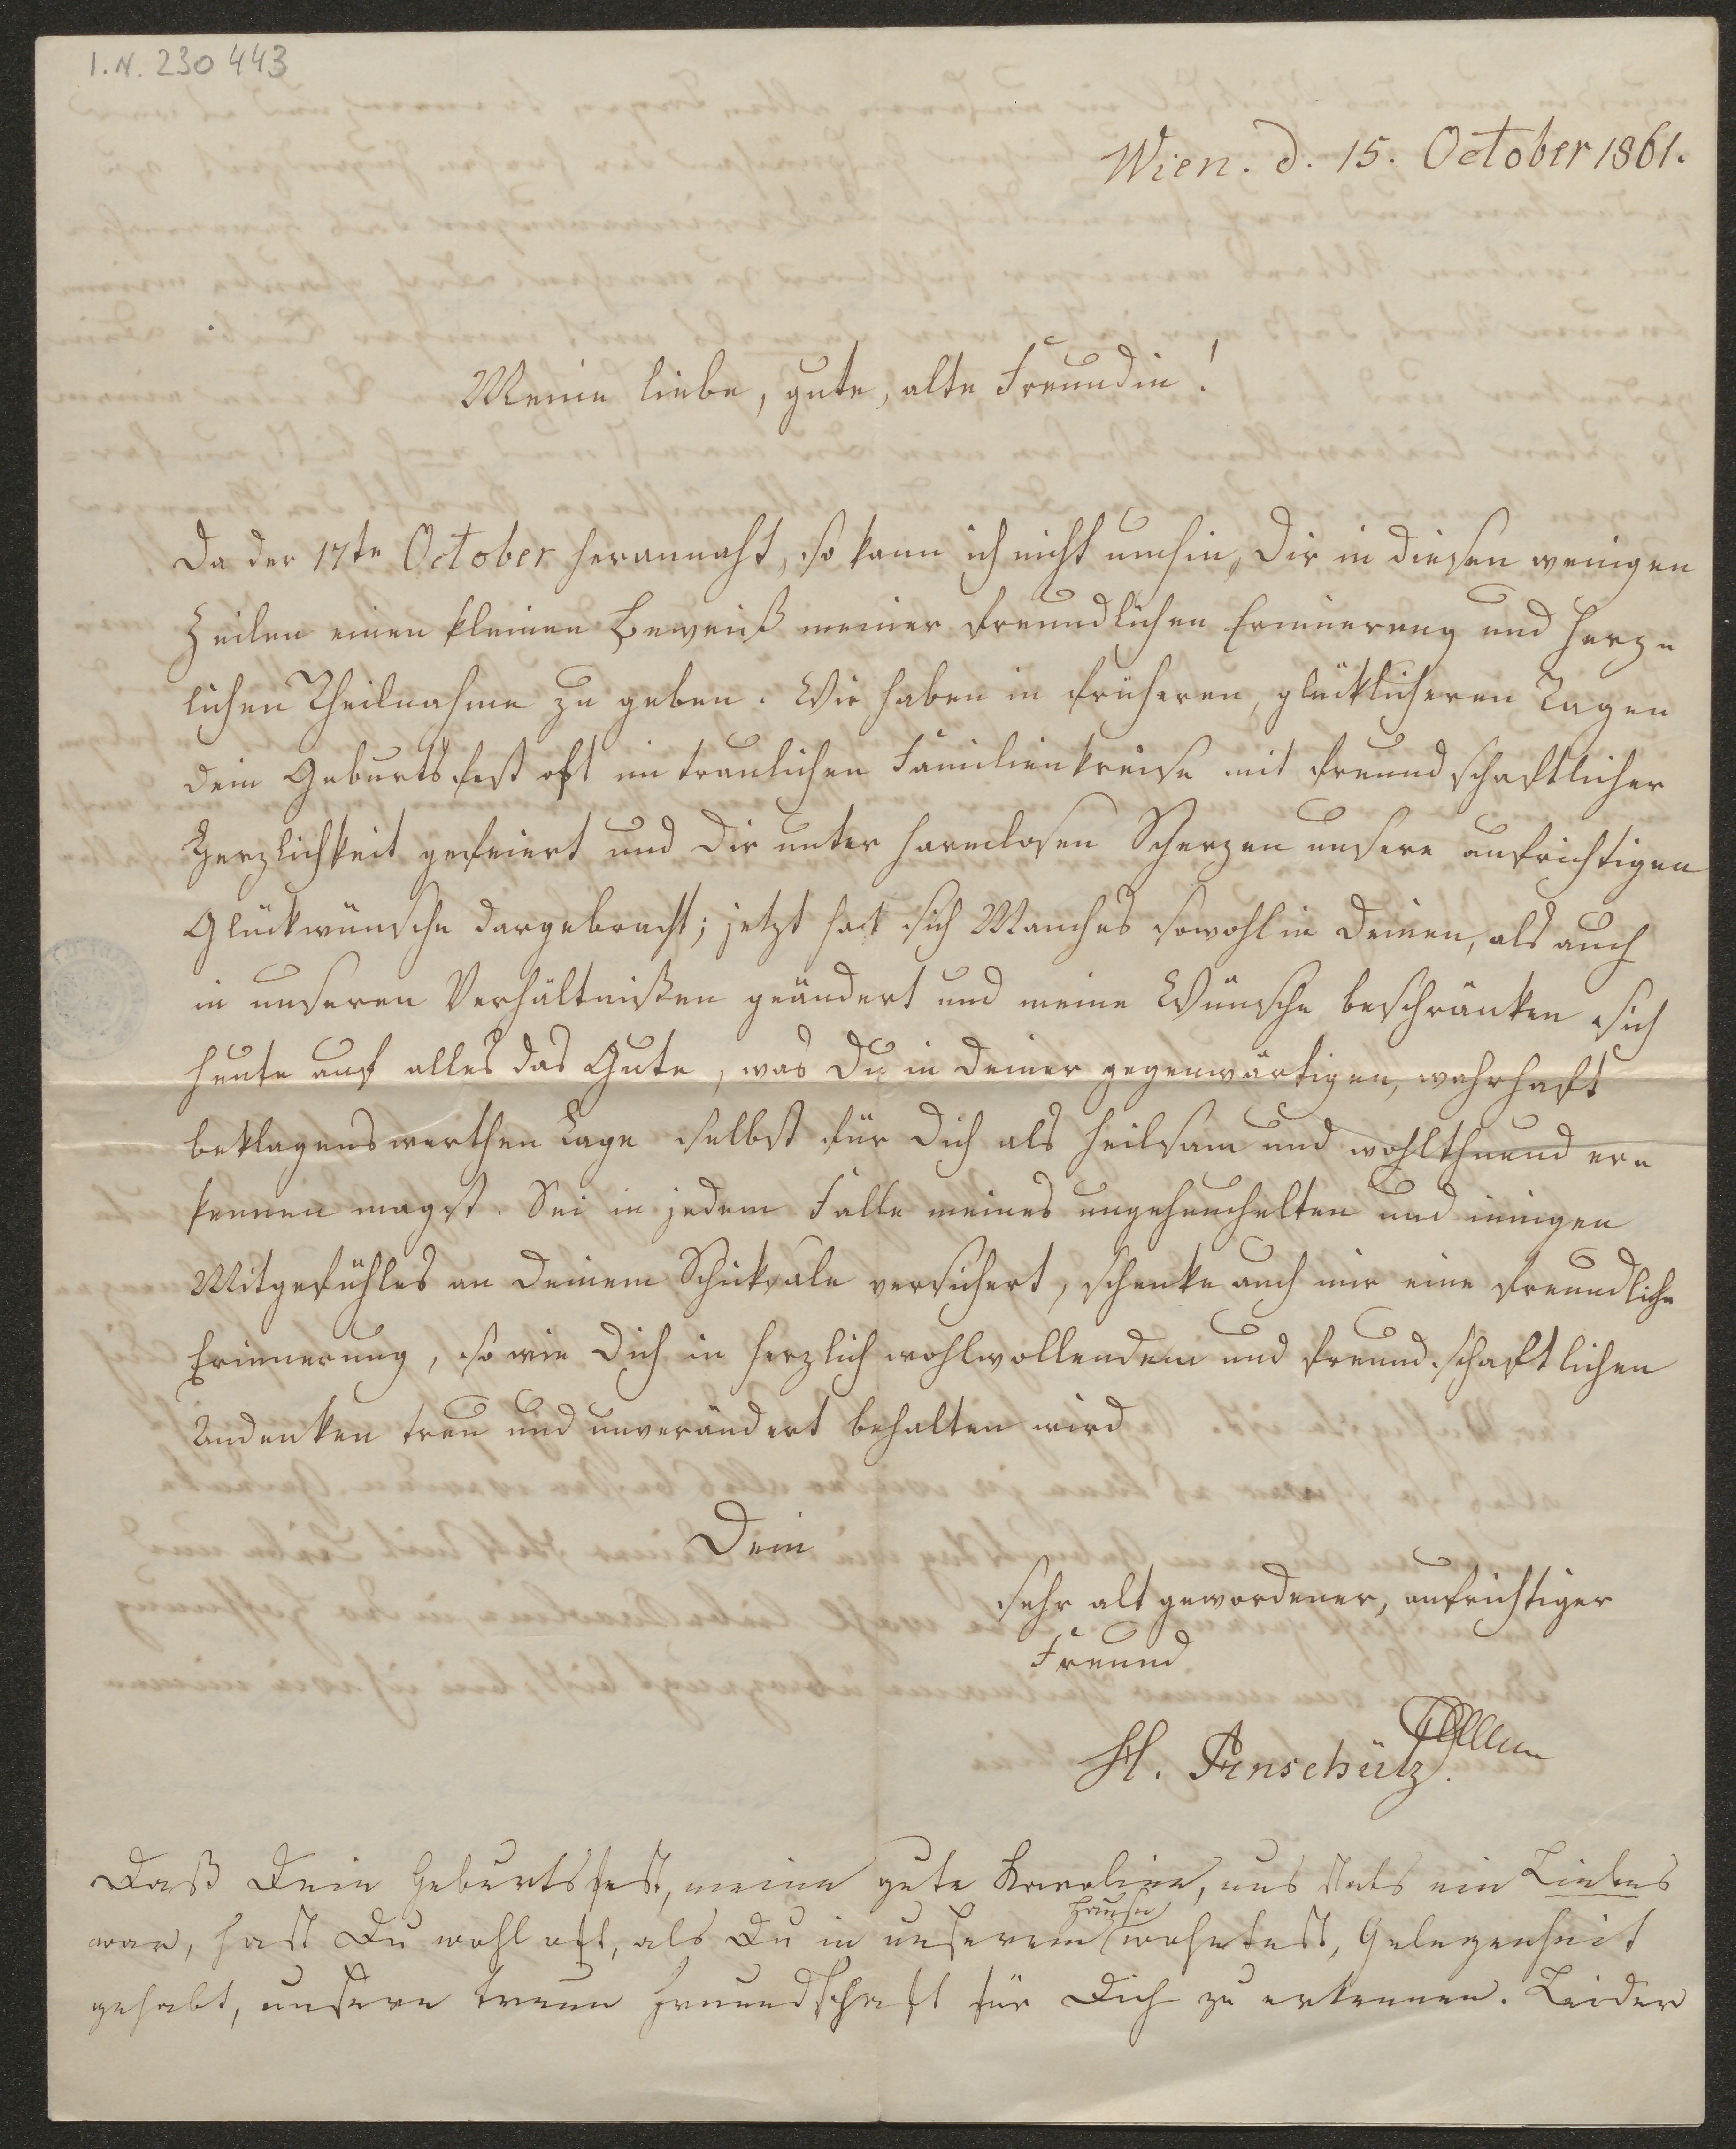 I.N. 230 443
Wien. d. 15. October 1861.
Meine liebe, gute, alte Freundin!
Da der 17te October herannaht, so kann ich nicht umhin, Dir in diesen wenigen
Zeilen einen kleinen Beweiß meiner freundlichen Erinnerung und herz-
lichen Theilnahme zu geben. Wir haben in früheren, glücklicheren Tagen
dein Geburtsfest oft im traulichen Familienkreise mit freundschaftlicher
Herzlichkeit gefeiert und Dir unter harmlosen Scherzen unsere aufrichtigen
Glückwünsche dargebracht; jetzt hat sich Manches sowohl in Deinen, als auch
in unseren Verhältnißen geändert und meine Wünsche beschränken sich
heute auf alles das Gute, was Du in Deiner gegenwärtigen, wahrhaft
beklagenswerthen Lage selbst für Dich als heilsam und wohlthuend er-
kennen magst. Sei in jedem Falle meines ungeheuchelten und innigen
Mitgefühles an Deinem Schicksale versichert, schenke auch mir eine freundliche
Erinnerung, so wie Dich in herzlich wohlwollendem und freundschaftlichen
Andenken treu und unverändert behalten wird
Dein
sehr alt gewordener, aufrichtiger
Freund
H. Anschütz.
Daß Dein Geburtsfest, meine gute Karoline, uns stets ein Liebes
war, hast Du wohl oft, als Du in unserem Hause wohntest, Gelegenheit
gehabt, unsere treue Freundschaft für Dich zu erkennen. Leider